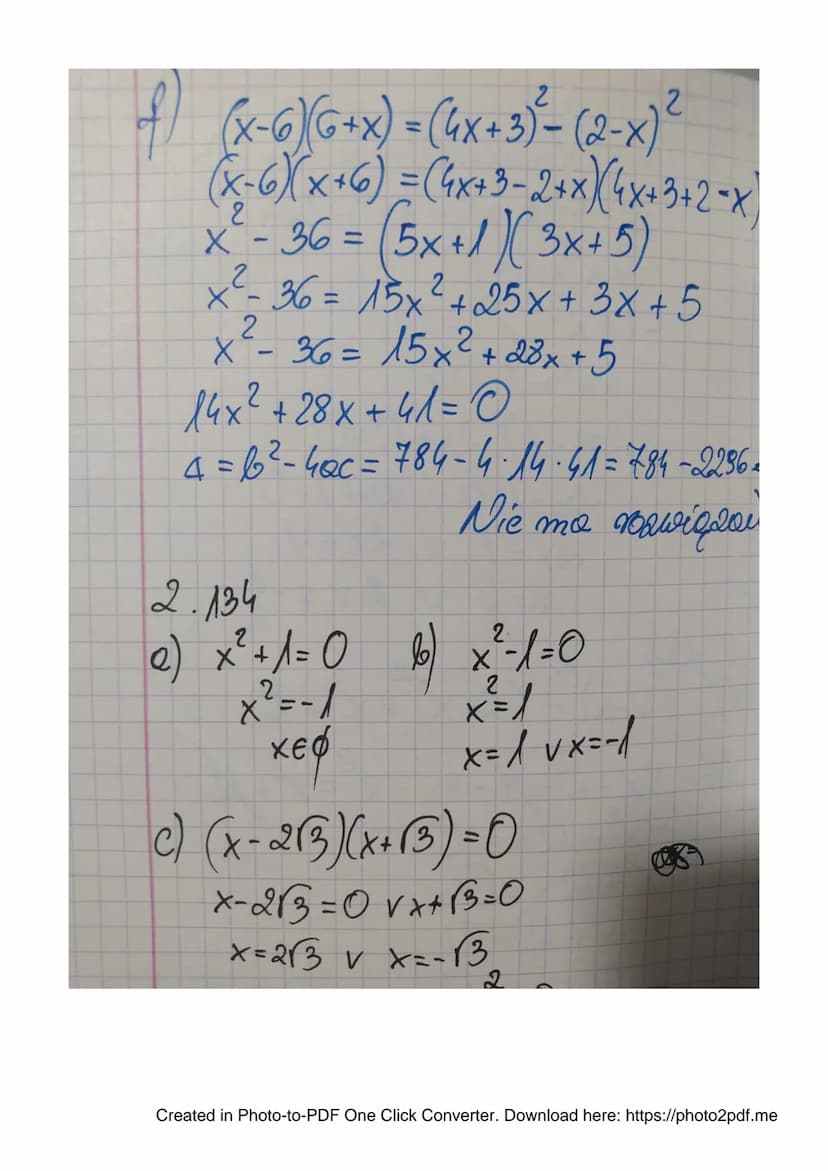 f) (x-6)(6+x) = (4x+3)² - (2-x)²
(x-6)(x+6) = (4x+3-2+x)(4x+3+2-x)
x² - 36 = (5x+1)(3x+5)
x² - 36 = 15x² + 25x + 3x + 5
x² - 36 = 15x² + 28x + 5
14x² + 28x + 41 = 0
Δ = b² - 4ac = 784 - 4·14·41 = 784 - 2296
Nie ma rozwiązań
2.134
a) x² + 1 = 0 b) x² - 1 = 0
x² = -1 x² = 1
x∈∅ x = 1 ∨ x = -1
c) (x - 2√3)(x + √3) = 0
x - 2√3 = 0 ∨ x + √3 = 0
x = 2√3 ∨ x = -√3
2
Created in Photo-to-PDF One Click Converter. Download here: https://photo2pdf.me